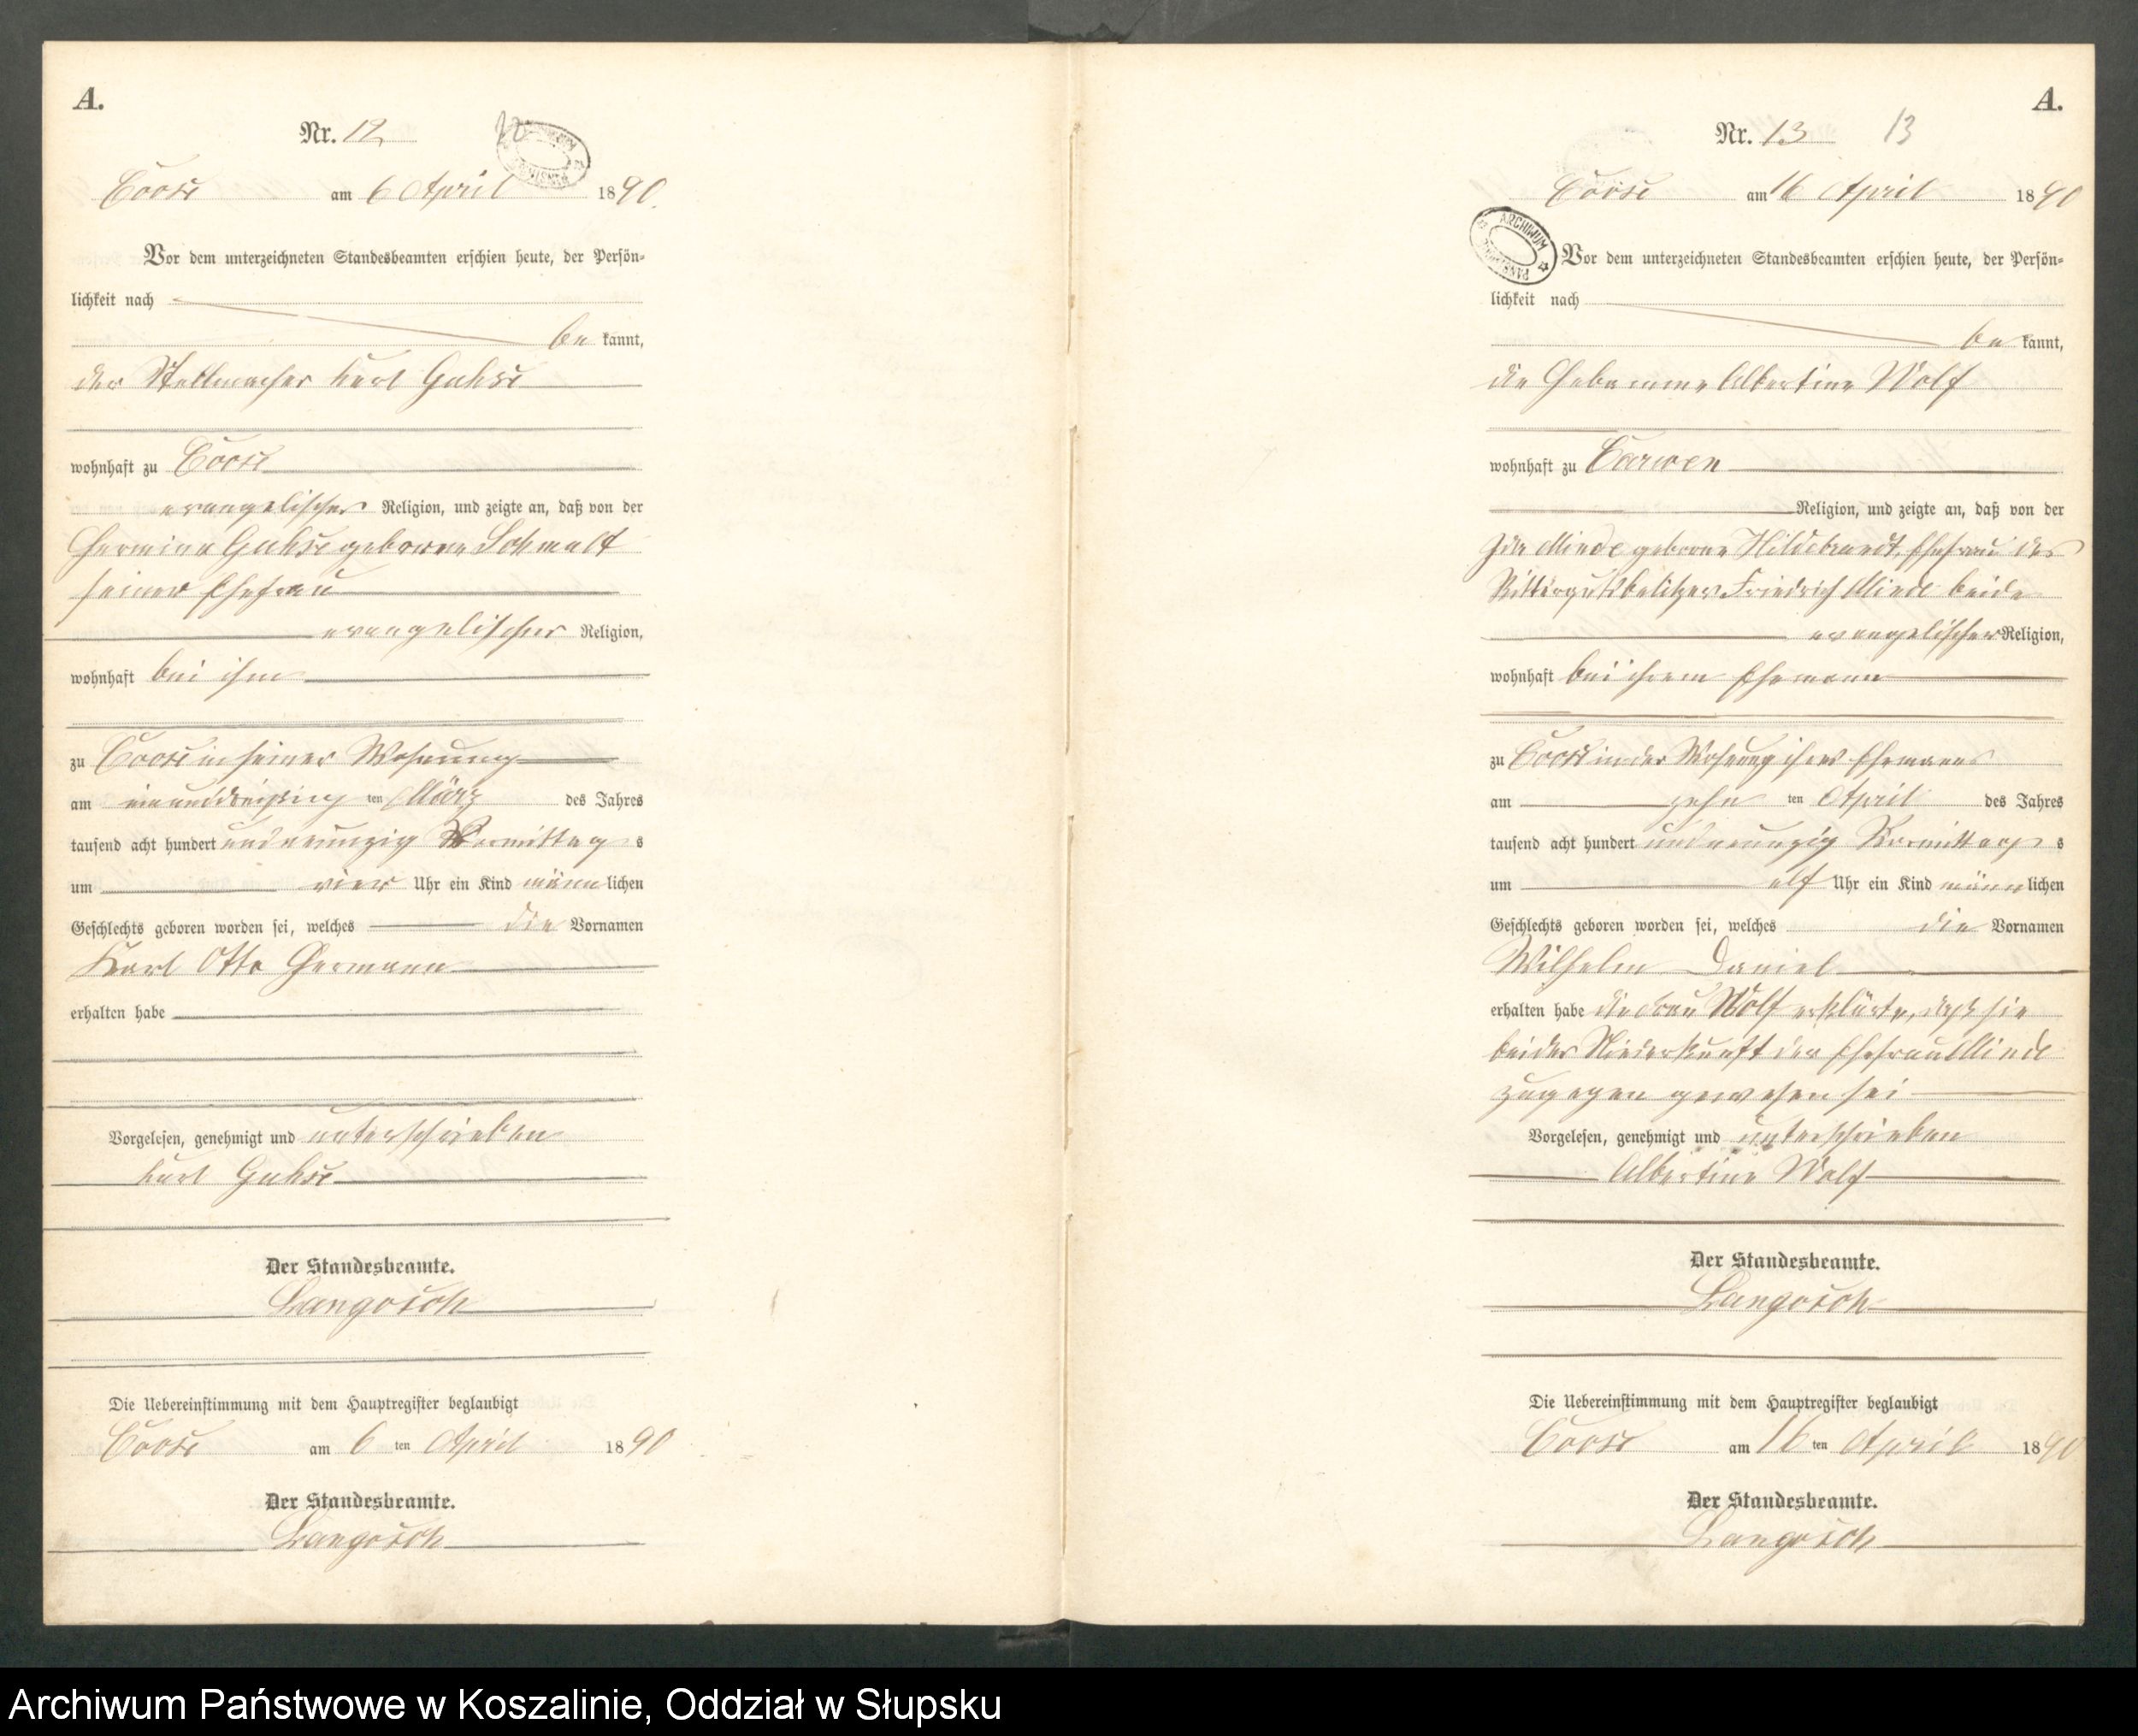 A.
Nr. 12
Coose am 6 April 1890.
Vor dem unterzeichneten Standesbeamten erschien heute, der Persön-
lichkeit nach
be kannt,
der Stellmacher Karl Guhse
wohnhaft zu Coose
evangelischer Religion, und zeigte an, daß von der
Hermine Guhse geborne Schmalt
seiner Ehefrau
evangelischer Religion,
wohnhaft bei ihm
zu Coose in seiner Wohnung
am einunddreißig ten März des Jahres
tausend acht hundert und neunzig Vormittag s
um vier Uhr ein Kind männlichen
Geschlechts geboren worden sei, welches die Vornamen
Karl Otto Hermann
erhalten habe
Vorgelesen, genehmigt und unterschrieben
Karl Guhse
Der Standesbeamte.
Langosch
Die Uebereinstimmung mit dem Hauptregister beglaubigt
Coose am 6 ten April 1890
Der Standesbeamte.
Langosch
A.
Nr. 13 13
Coose am 16 April 1890
ARCHIWUM
Vor dem unterzeichneten Standesbeamten erschien heute, der Persön-
lichkeit nach
be kannt,
die Hebamme Albertine Wolf
wohnhaft zu Carwen
Religion, und zeigte an, daß von der
Ida Miede geborne Hildebrandt, Ehefrau des
Rittergutsbesitzer Friedrich Miede beide
evangelischer Religion,
wohnhaft bei ihrem Ehemann
zu Coose in der Wohnung ihres Ehemanns
am zehn ten April des Jahres
tausend acht hundert und neunzig Vormittag s
um elf Uhr ein Kind männlichen
Geschlechts geboren worden sei, welches die Vornamen
Wilhelm Daniel
erhalten habe die Frau Wolf erklärte, daß sie
bei der Niederkunft der Ehefrau Miede
zugegen gewesen sei
Vorgelesen, genehmigt und unterschrieben
Albertine Wolf
Der Standesbeamte.
Langosch
Die Uebereinstimmung mit dem Hauptregister beglaubigt
Coose am 16 ten April 1890
Der Standesbeamte.
Langosch
Archiwum Państwowe w Koszalinie, Oddział w Słupsku